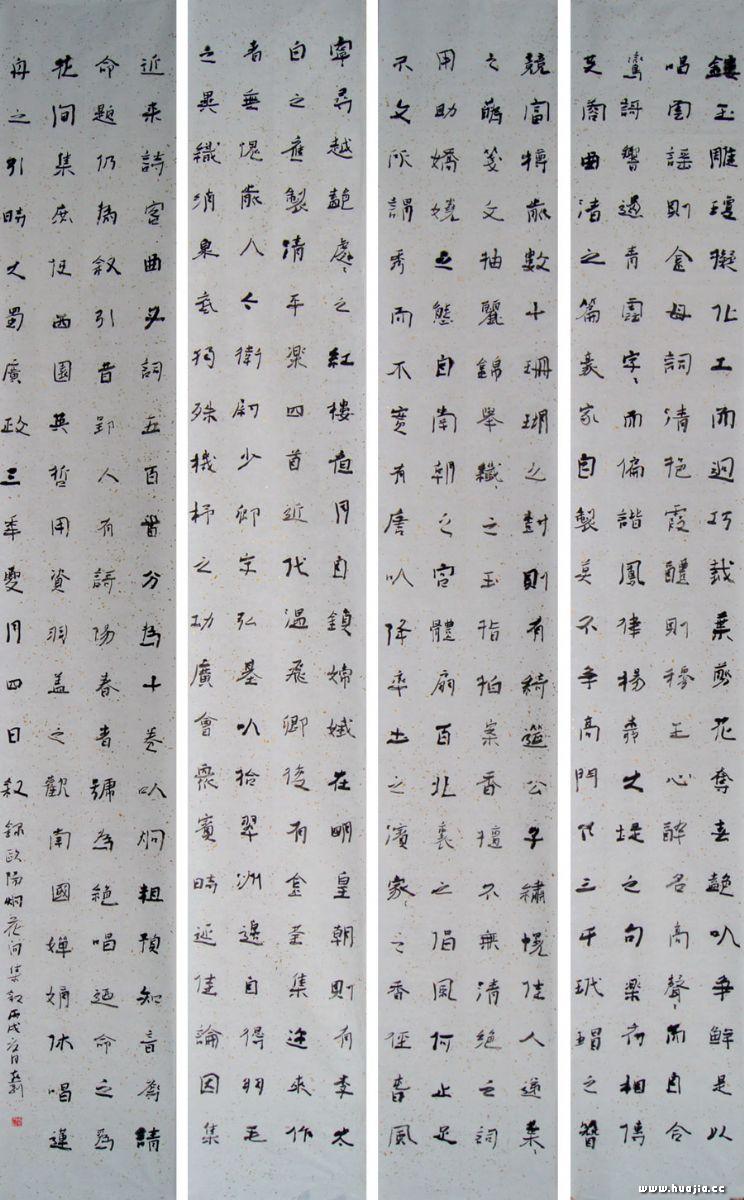 鏤玉雕瓊擬化工而迥巧裁葉剪花奪春豔以爭鮮是以
唱雲謠則金母詞清挹霞醴則穆王心醉名高聲〻而自合
鸞謌響遏青雲字〻而偏諧鳳律楊柳大堤之句樂府相傳
芙蓉曲渚之篇豪家自製莫不爭高門下三千玳瑁之簪
競富樽前數十珊瑚之樹則有綺筵公子繡幌佳人遞葉〻
之花箋文抽麗錦舉纖〻之玉指拍案香檀不無清絕之詞
用助嬌嬈之態自南朝之宮體扇百北裏之倡風何止足
不文所謂秀而不實有唐以降率土之濱家〻之香徑春風
寧尋越豔處〻之紅樓夜月自鎖嫦娥在明皇朝則有李太
白之應製清平樂四首近代溫飛卿復有金荃集迩來作
者無愧前人今衛尉少卿字弘基以拾翠洲邊自得羽毛
之異織綃泉底獨殊機杼之功廣會衆賓時延佳論因集
近來詩客曲子詞五百首分為十卷以炯粗預知音辱請
命題仍為敘引昔郢人有謌陽春者號為絕唱迺命之為
花間集庶使西園英哲用資羽蓋之歡南國嬋娟休唱蓮
舟之引時大蜀廣政三年夏月四日敘 錄歐陽炯花間集敘丙戌
www.huajia.cc